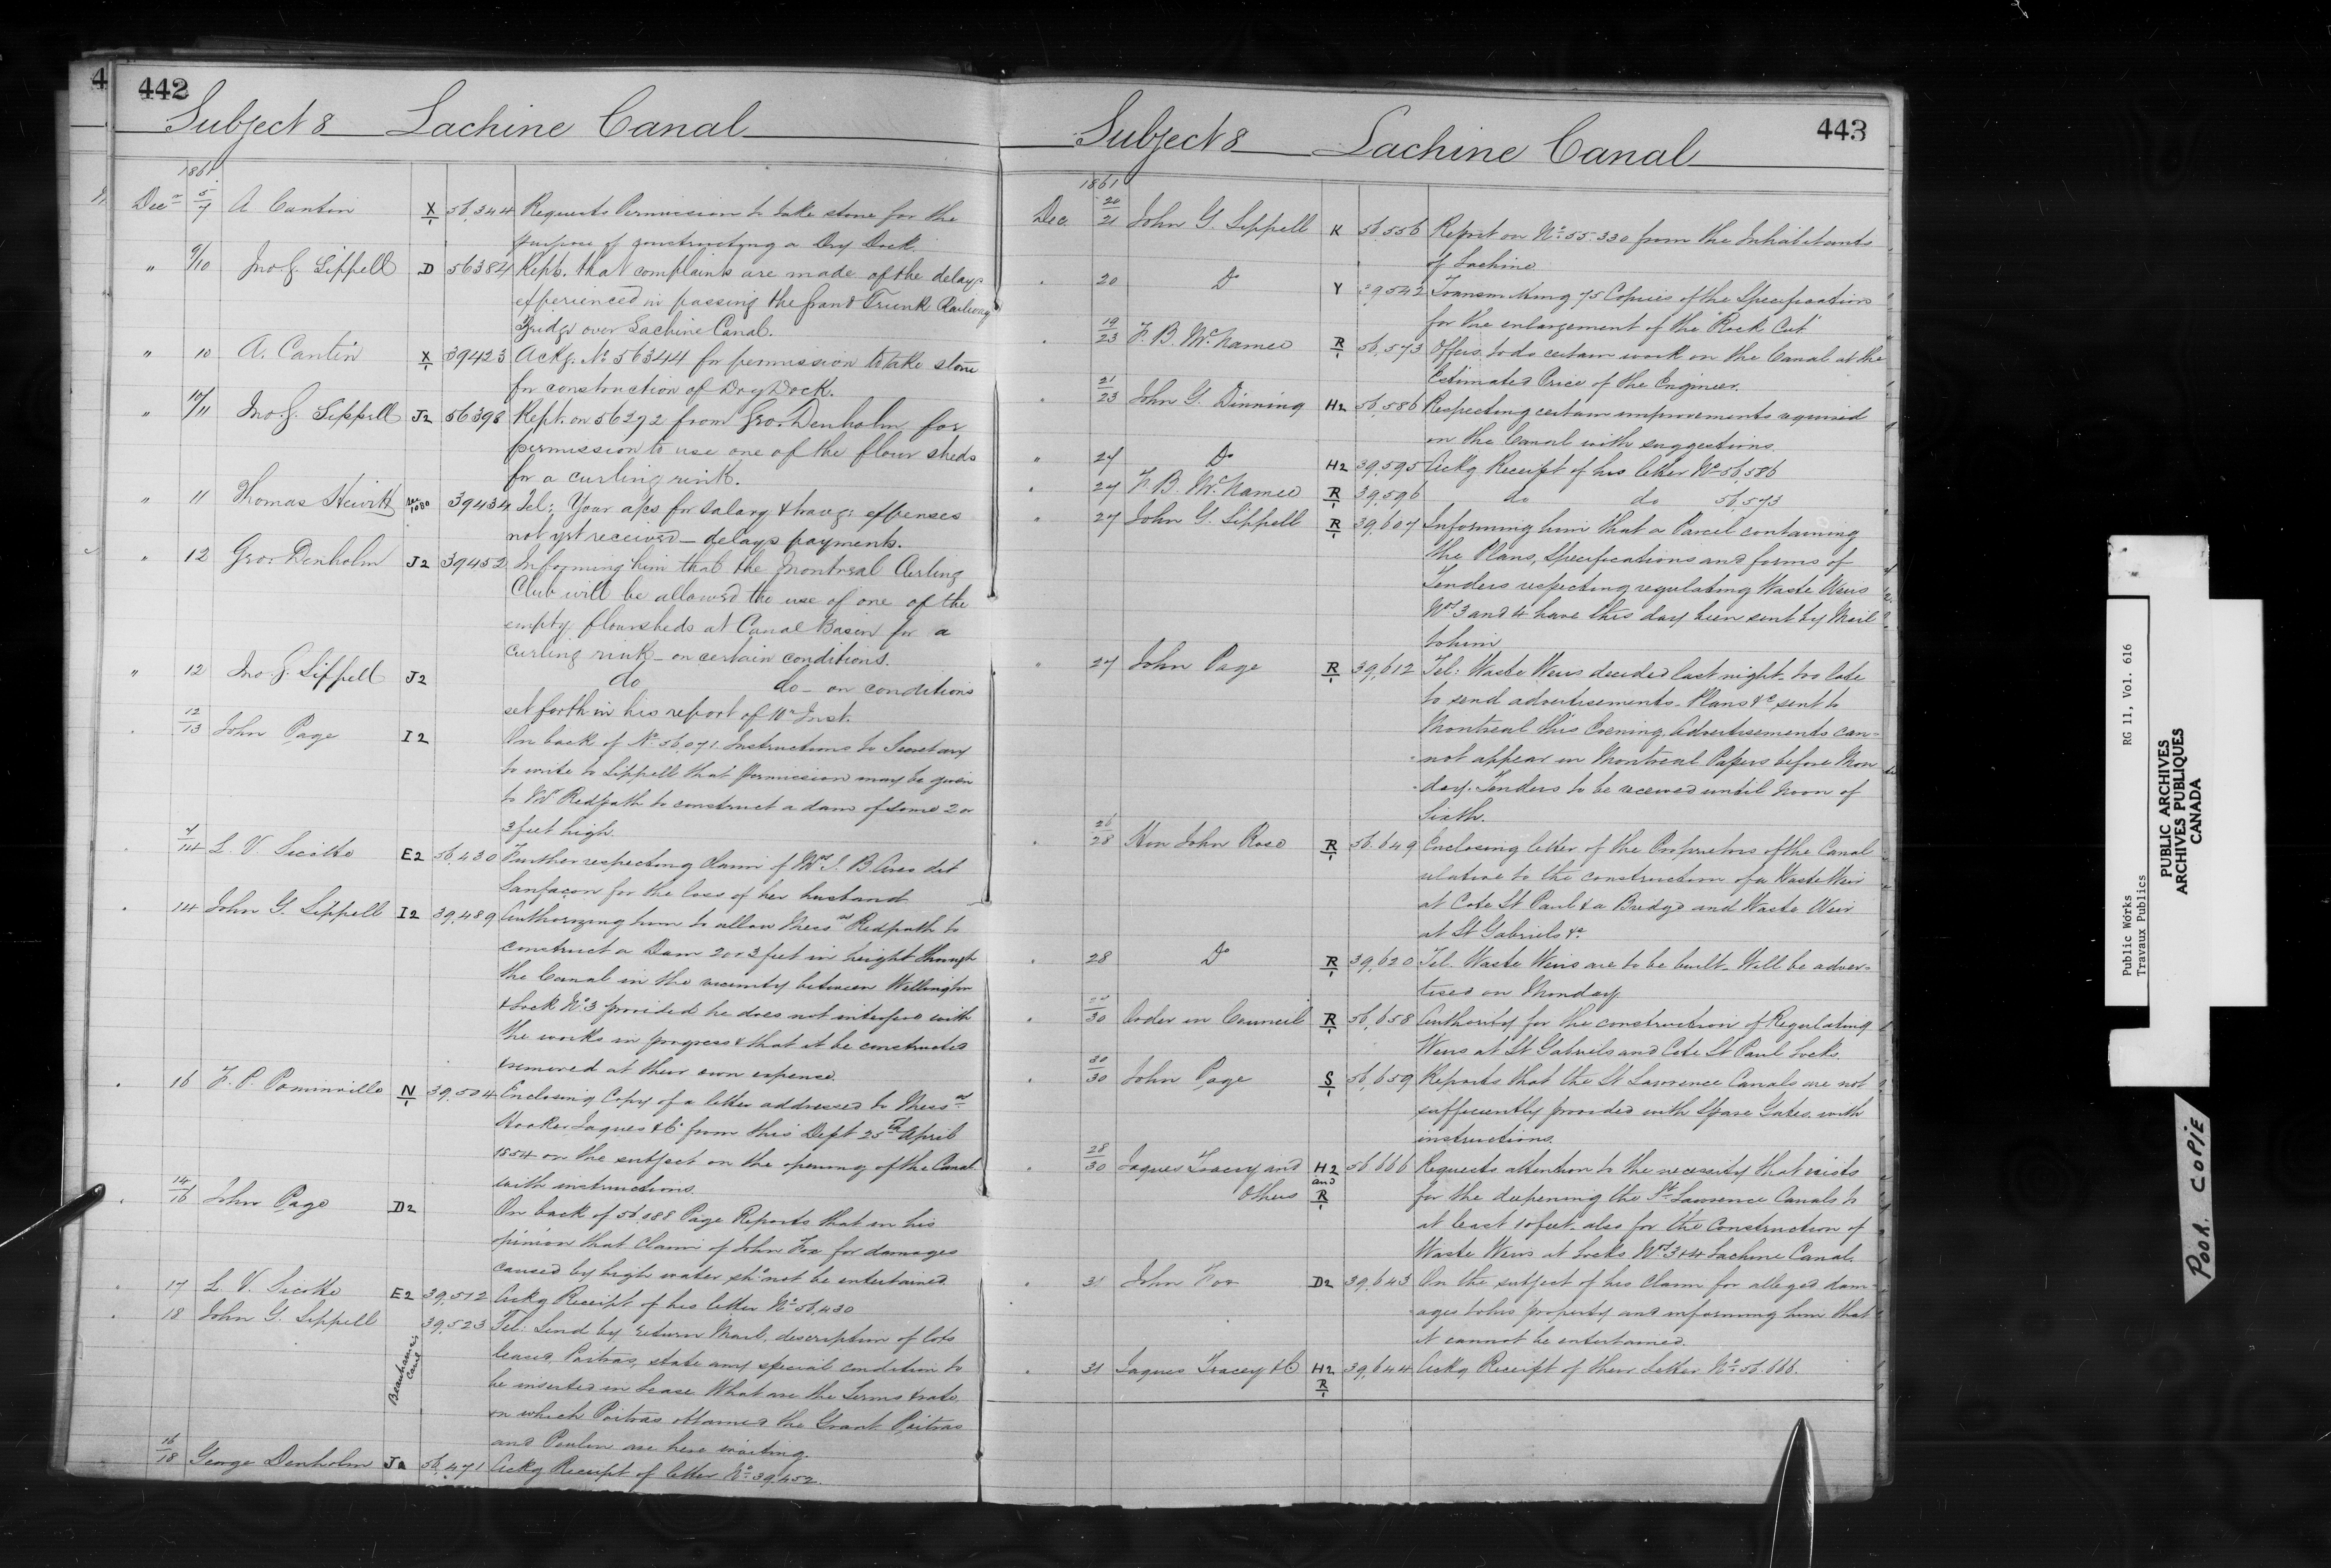 4
442
Subject 8 Lachine Canal
1861
Decr 5/7 A Cantin X/1 56,344 Requests Permission to take stone for the
purpose of constructing a Dry Dock.
" 9/10 Jno. G. Sippell D 56384 Rept. that complaints are made of the delays
experienced in passing the Grand Trunk Railway
Bridge over Lachine Canal.
" 10 A. Cantin X/1 39423 Ackg. No 56344 for permission to take stone
for construction of Dry Dock.
" 10/11 Jno. G. Sippell J2 56398 Rept. on 56292 from Geo. Denholm for
permission to use one of the flour sheds
for a curling rink.
" 11 Thomas Hewitt 39434 Tel: Your a/cs for salary & travg: expenses
not yet received - delays payments.
" 12 Geo. Denholm J2 39452 Informing him that the Montreal Curling
Club will be allowed the use of one of the
empty floursheds at Canal Basin for a
curling rink - on certain conditions.
" 12 Jno. G. Sippell J2 do do - on conditions
set forth in his report of 10th Inst.
12/13 John Page I2 On back of No 56,071 Instructions to Secretary
to write to Sippell that permission may be given
to Mr Redpath to construct a dam of some 2 or
3 feet high.
7/14 L. V. Sicotte E2 56,430 Further respecting claim of Mrs J. B. Ares dit
Sanfaçon for the loss of her husband
14 John G. Sippell I2 39,489 Authorizing him to allow Messrs Redpath to
construct a Dam 2 or 3 feet in height through
the Canal in the vicinity between Wellington
& Lock No 3 provided he does not interfere with
the works in progress & that it be constructed
& removed at their own expense.
16 F. P. Pominville N/1 39,504 Enclosing Copy of a letter addressed to Messrs
Hooker Jaques & Co from this Dept 25th April
1854 on the subject on the opening of the Canal
with instructions.
14/16 John Page D2 On back of 56,188 Page Reports that in his
opinion that Claim of John Fox for damages
caused by high water shd not be entertained
17 L. V. Sicotte E2 39,512 Ackg Receipt of his letter No 56,430
18 John G. Sippell Beauharnois Canl 39,523 Tel: Send by return Mail, description of lots
leased Poitras, state any special condition to
be inserted in Lease What are the Terms & rate
on which Poitras obtained the Grant. Poitras
and Poulin are here waiting.
16/18 George Denholm J2 56,471 Ackg Receipt of letter No 39,452.
443
Subject 8 Lachine Canal
1861
Dec. 20/21 John G. Sippell K 56,556 Report on No 55,330 from the Inhabitants
of Lachine
20 Do Y 39,542 Transmitting 75 Copies of the Specifications
for the enlargement of the "Rock Cut"
19/23 F. B. McNamee R/1 56,573 Offers to do certain work on the Canal at the
Estimated Price of the Engineer.
21/23 John G. Dinning H2 56,586 Respecting certain improvements required
on the Canal with suggestions.
" 24 Do H2 39,595 Ackg Receipt of his letter No 56,586
" 24 F. B. McNamee R/1 39,596 do do 56,573
" 27 John G. Sippell R/1 39,607 Informing him that a Parcel containing
the Plans, Specifications and forms of
Tenders respecting regulating Waste Weirs
Nos 3 and 4 have this day been sent by Mail
to him
" 27 John Page R/1 39,612 Tel: Waste Weirs decided last night - too late
to send advertisements - Plans &c, sent to
Montreal this Evening. Advertisements can=
=not appear in Montreal Papers before Mon
=day. Tenders to be received until Noon of
Sixth.
26/28 Hon John Rose R/1 56,649 Enclosing letter of the Proprietors of the Canal
relative to the construction of a Waste Weir
at Cote St Paul & a Bridge and Waste Weir
at St Gabriels &c
28 Do R/1 39,620 Tel. Waste Weirs are to be built - Will be adver=
tised on Monday.
30 Order in Council R/1 56,658 Authority for the construction of Regulating
Weirs at St Gabriels and Cote St Paul Locks.
30/30 John Page S/1 56,659 Reports that the St Lawrence Canals are not
sufficiently provided with Spare Gates. with
instructions.
28/30 Jaques Tracey and others H2 and R/1 56,666 Requests attention to the necessity that exists
for the deepening the St Lawrence Canals to
at least 10 feet. also for the Construction of
Waste Weirs at Locks Nos 3 & 4 Lachine Canal.
31 John Fox D2 39,643 On the subject of his claim for alleged dam=
=ages to his property and informing him that
it cannot be entertained.
31 Jaques Tracey & Co H2 R/1 39,644 Ackg Receipt of their Letter No 56,666.
Public Works RG 11, Vol. 616
Travaux Publics
PUBLIC ARCHIVES
ARCHIVES PUBLIQUES
CANADA
POOR COPIE